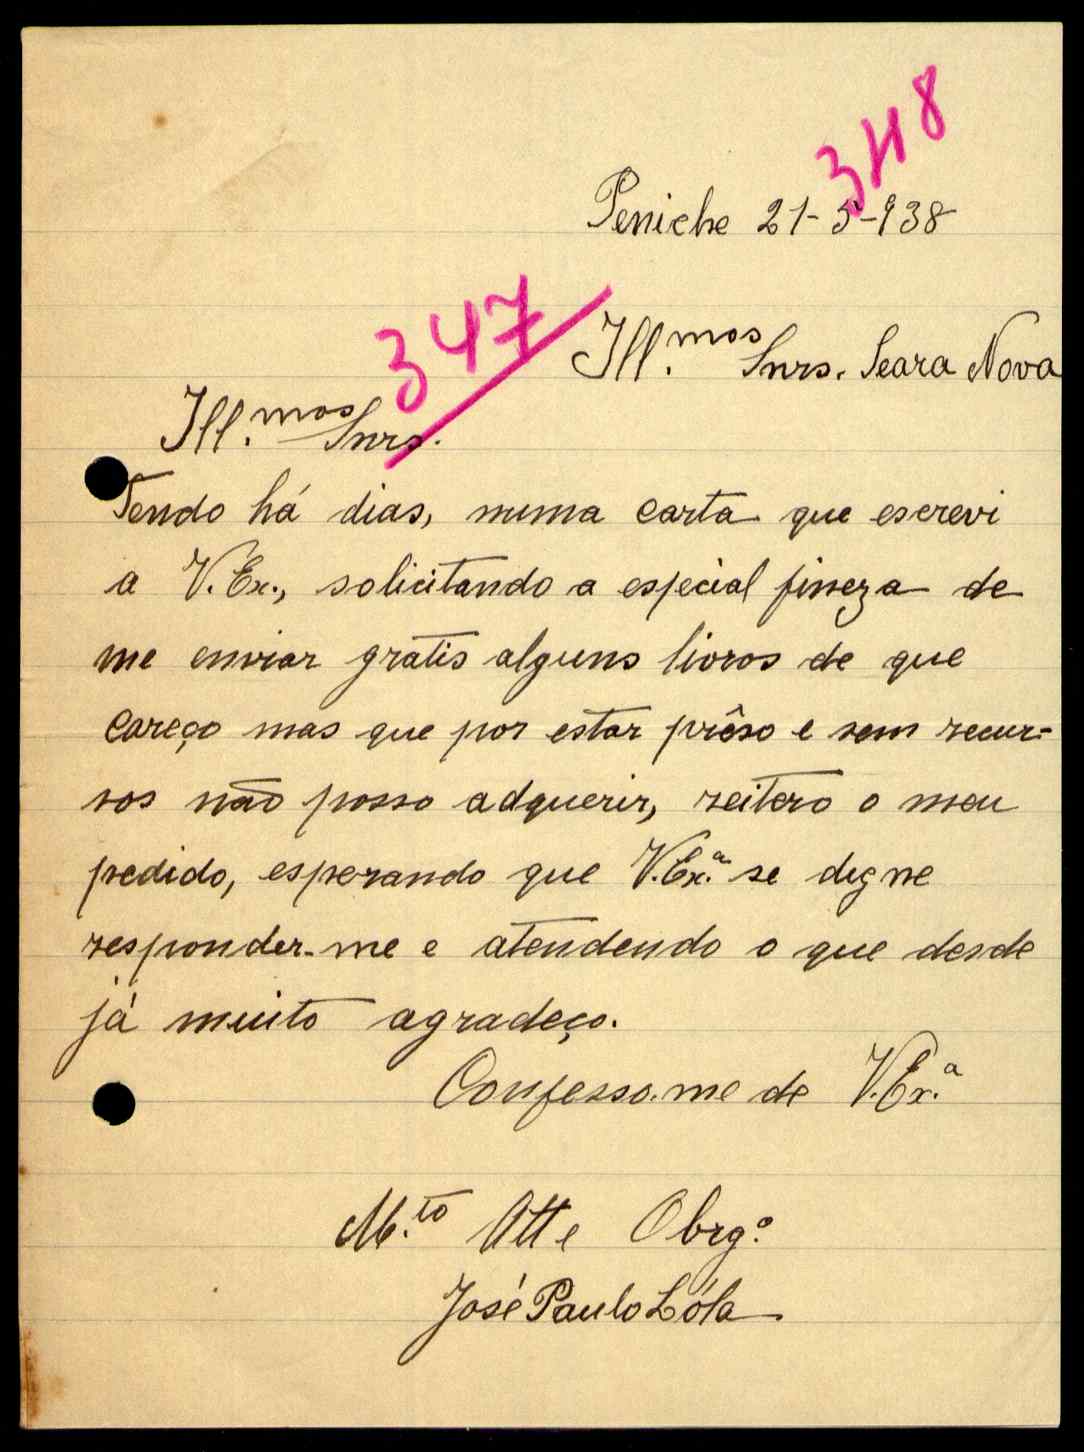 348
Peniche 21-5-938
347
Ill.mos Snrs. Seara Nova
Ill.mos Snrs.
Tendo há dias, numa carta que escrevi
a V. Ex., solicitando a especial fineza de
me enviar gratis alguns livros de que
careço mas que por estar prêso e sem recur-
sos não posso adquerir, reitero o meu
pedido, esperando que V. Ex.ª se digne
responder-me e atendendo o que desde
já muito agradeço.
Confesso-me de V. Ex.ª
M.to Att e Obrg.º
José Paulo Lóla